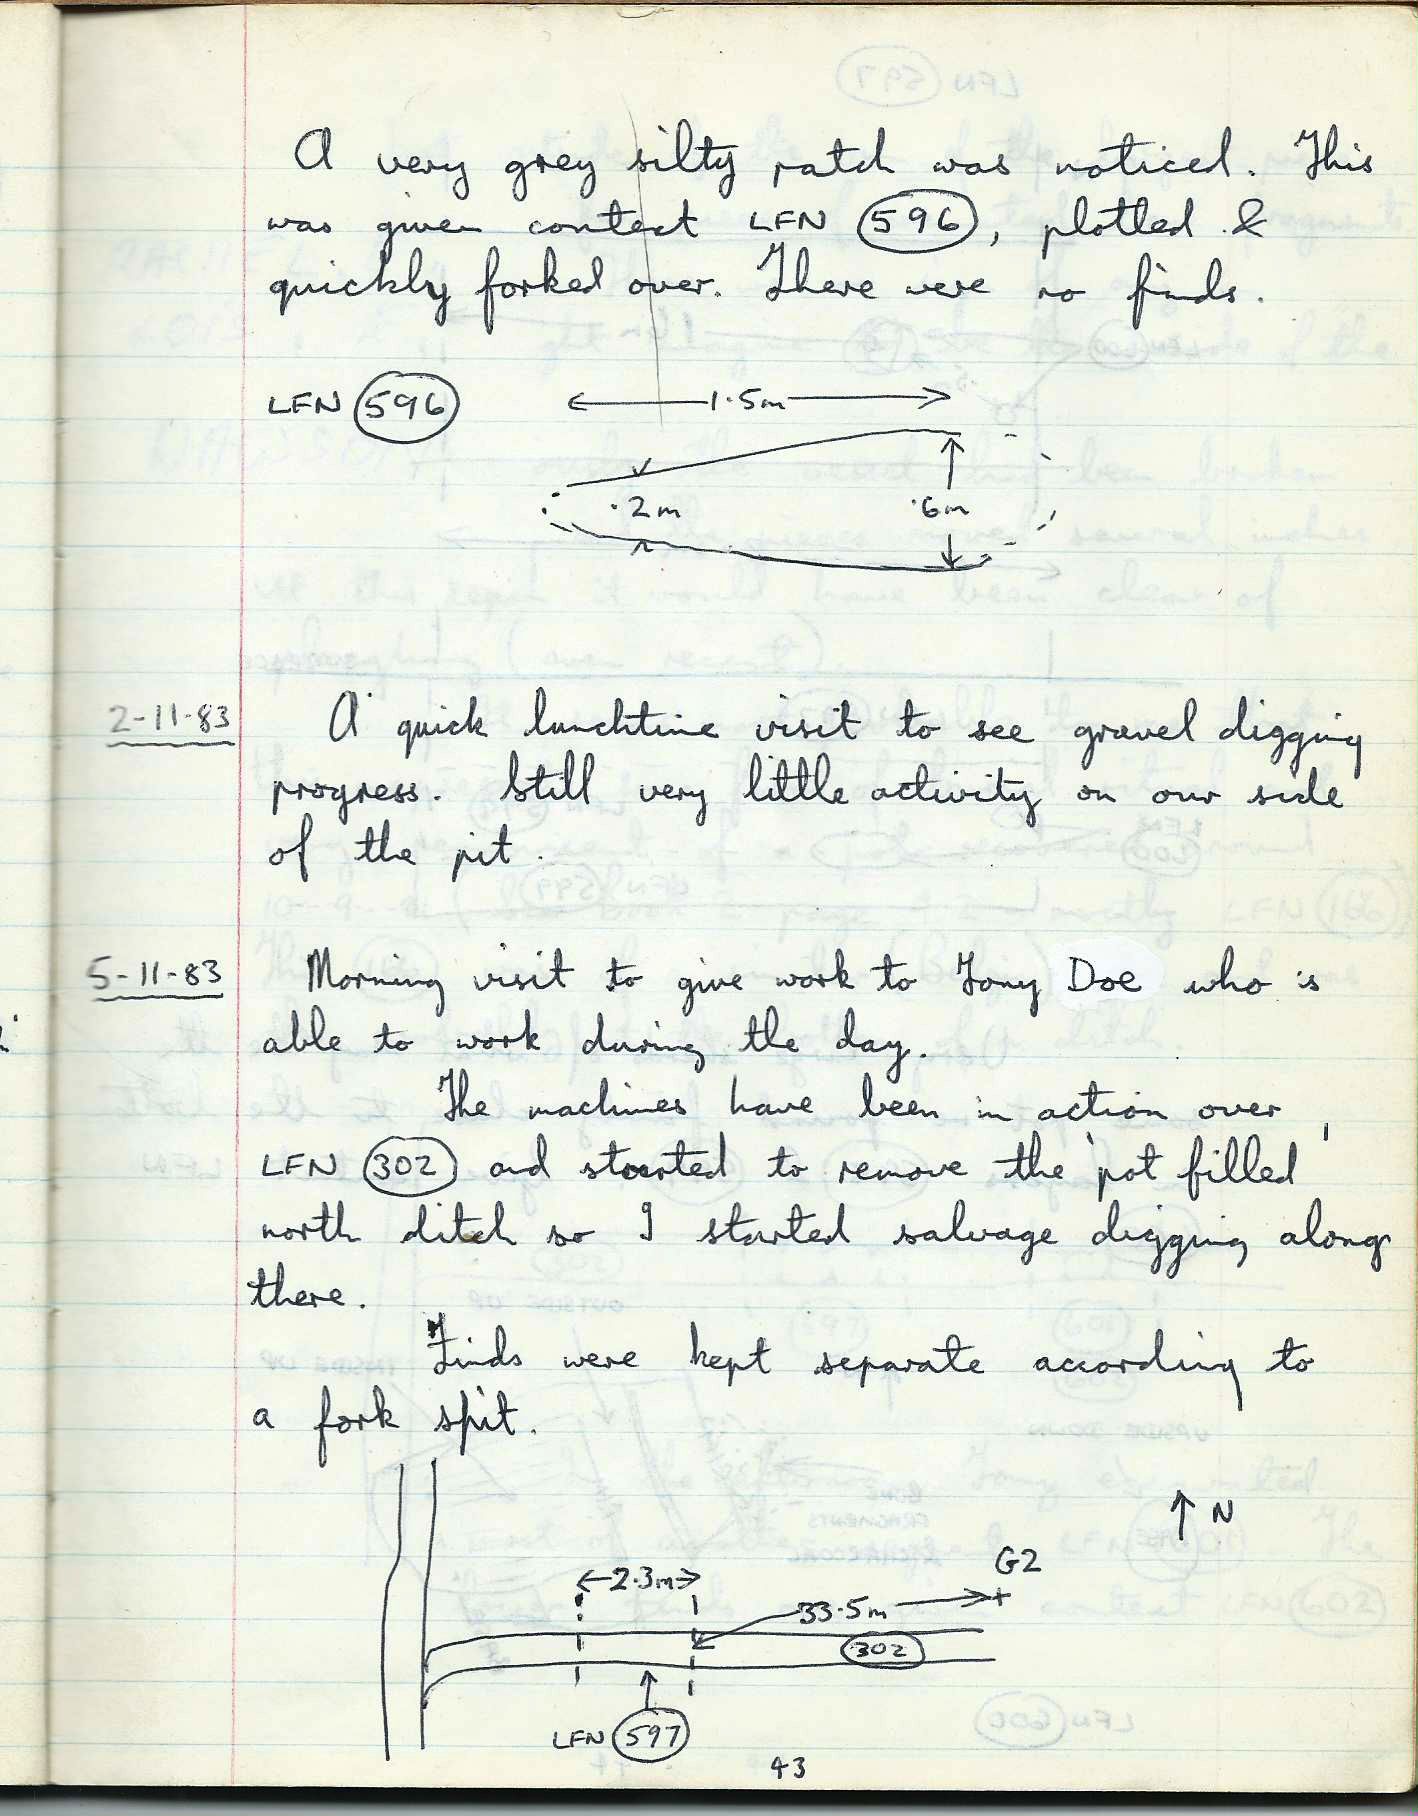 A very grey silty patch was noticed. This
was given context LFN 596, plotted &
quickly forked over. There were no finds.
LFN 596
1.5m
.2m
.6m
2-11-83
A quick lunchtime visit to see gravel digging
progress. Still very little activity on our side
of the pit.
5-11-83
Morning visit to give work to Tony Doe who is
able to work during the day.
The machines have been in action over
LFN 302 and started to remove the 'pot filled'
north ditch so I started salvage digging along
there.
Finds were kept separate according to
a fork spit.
N
G2
2.3m
33.5m
302
LFN 597
43